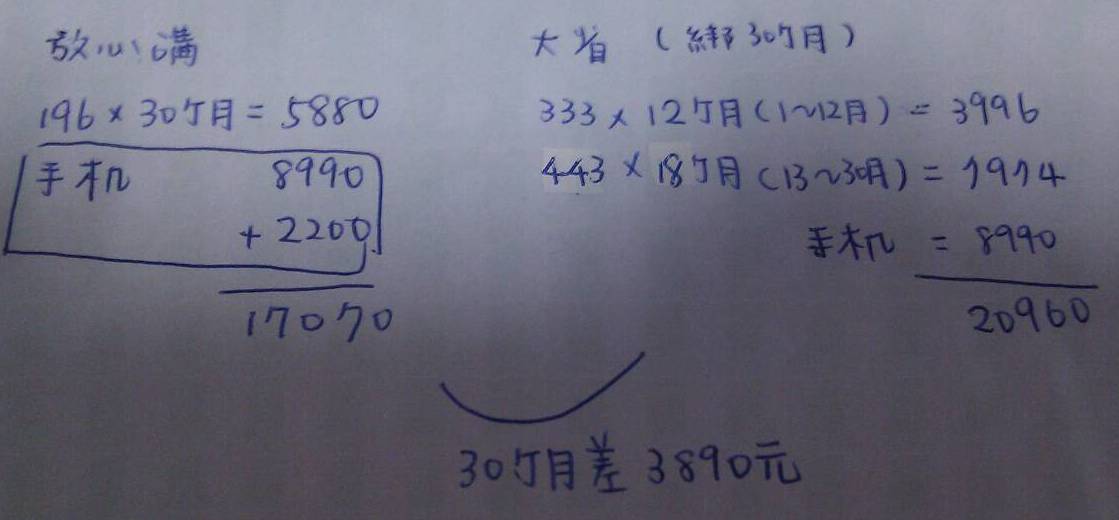 放心講
196 × 30个月 = 5880
手机 8990
+ 2200
17070
大省 (綁30个月)
333 × 12个月 (1~12月) = 3996
443 × 18个月 (13~30月) = 7974
手机 = 8990
20960
30个月差 3890元